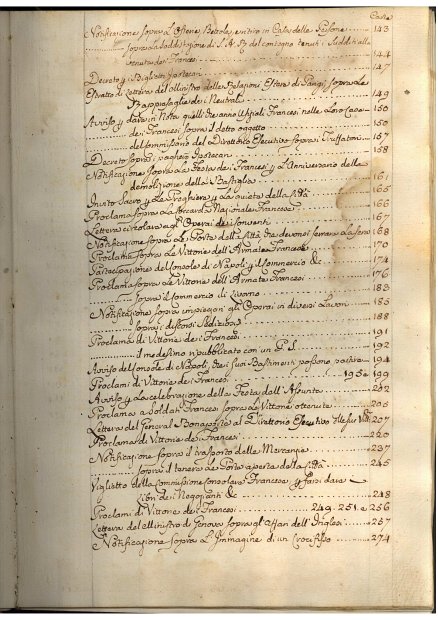 Carte
Notificazione sopra l'Osterie, Bettole, e ritiro in Casa delle Persone 143
sopra la soddisfazione di S.A.R. del contegno tenuto i Sudditi alla
venuta dei Francesi 144
Decreto p i Biglietti 147
Estratto di Lettera del Ministro delle Relazioni Estere di Parigi sopra le
Rappresaglie dei Neutrali 149
Avviso p dare in Nota quelli che anno Ufiziali Francesi nelle Loro Case 150
dei Francesi sopra l'detto oggetto 150
del Commissario del Direttorio Esecutivo sopra i Truffatori 157
Decreto sopra i 158
Notificazione sopra la Festa dei Francesi p l'Anniversario della
demolizione della Bastiglia 161
Invito Sacro p le Preghiere p la quiete della Città 165
Proclama sopra la Coccarda Nazionale Francese 166
Lettera circolare agl'Operai dei Conventi 167
Notificazione sopra le Porte della Città che devonsi serrare La sera 168
Proclama sopra le Vittorie dell'Armata Francese 170
Partecipazione del Console di Napoli p il Commercio &c 174
Proclama sopra le Vittorie dell'Armata Francese 176
Sopra il Commercio di Livorno 183
Notificazione sopra impiegare gli Operai in diversi Lavori 185
sopra i discorsi Sediziosi 188
Proclama di Vittorie dei Francesi 191
I medesimo ripubblicato con un P.S. 192
Avviso del Console di Napoli, che i suoi Bastimenti possono partire 194
Proclami di Vittorie dei Francesi 195 e 199
Avviso p la celebrazione della Festa dell'Assunta 202
Proclama a Soldati Francesi sopra le Vittorie ottenute 205
Lettera del General Bonaparte al Direttorio Esecutivo 207
Proclama di Vittorie dei Francesi 220
Notificazione sopra il trasporto delle Mercanzie 237
sopra il tenere le Porte aperte della Città 245
Viglietto della Commissione Consolare Francese p farsi dare
dei Negozianti &c 248
Proclami di Vittorie dei Francesi 249. 251. e 256
Lettera del Ministro di Genova sopra gl'Affari dell'Inglesi 257
Notificazione sopra l'Immagine di un Crocifisso 274